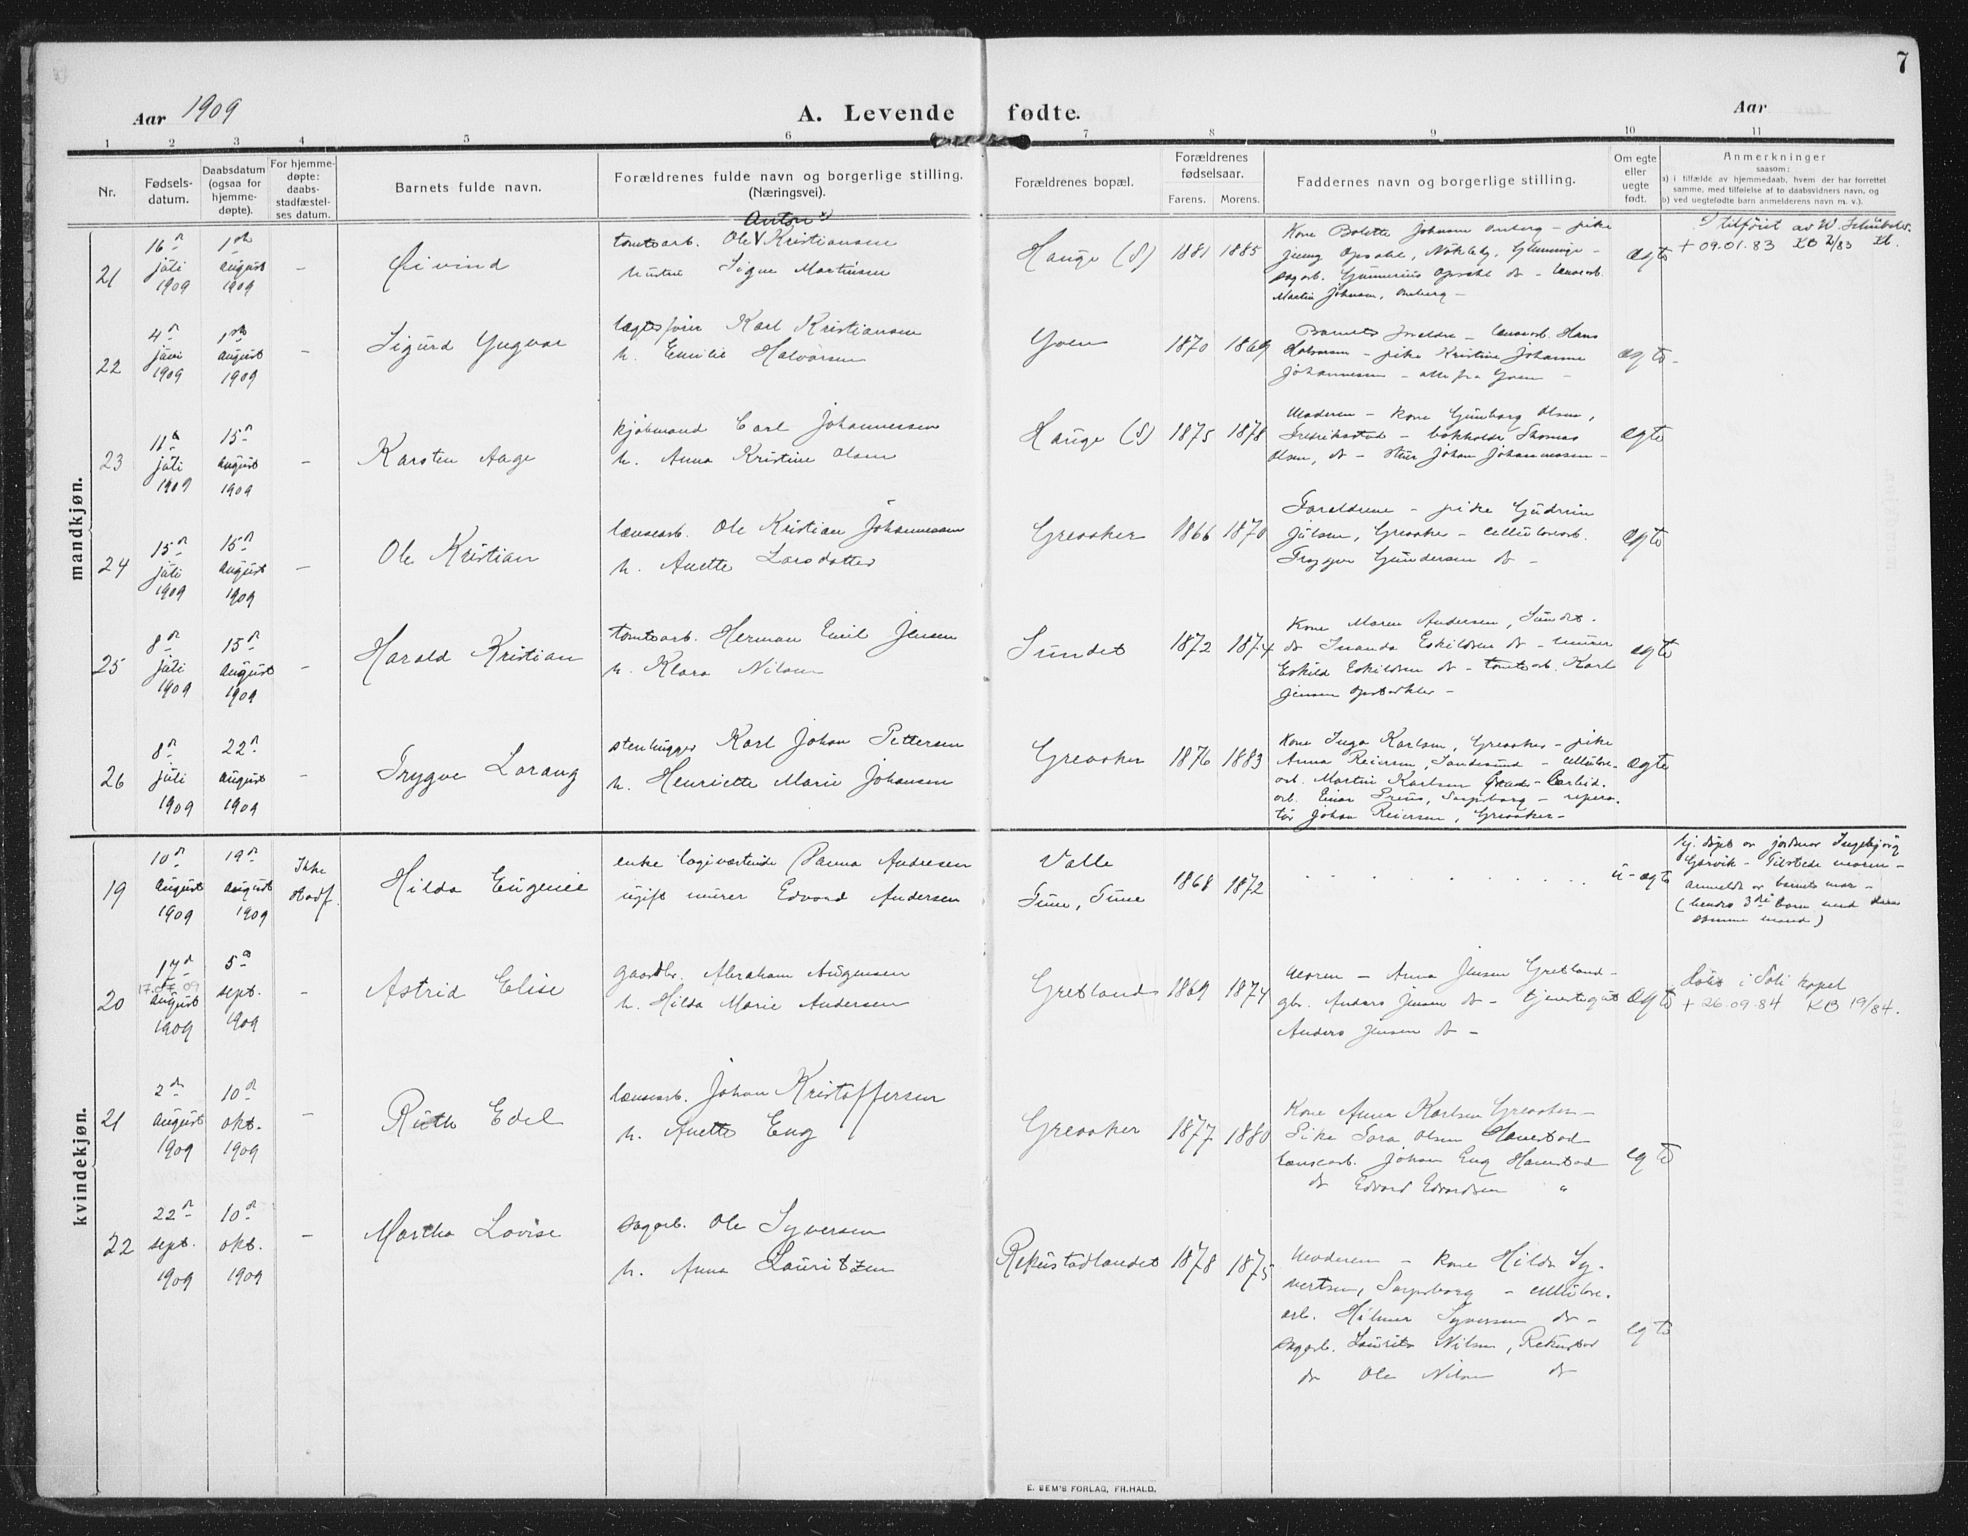 7
Aar 1909
A. Levende fødte.
Aar
1 2 3 4 5 6 7 8 9 10 11
Nr.
Fødsels-
datum.
Daabsdatum
(ogsaa for
hjemme-
døpte).
For hjemme-
døpte:
daabs-
stadfæstel-
ses datum.
Barnets fulde navn.
Forældrenes fulde navn og borgerlige stilling.
(Næringsvei).
Forældrenes bopæl.
Forældrenes
fødselsaar.
Farens. Morens.
Faddernes navn og borgerlige stilling.
Om egte
eller
uegte
født.
Anmerkninger
saasom:
a) i tilfælde av hjemmedaab, hvem der har forrettet
samme, med tilføielse af to daabsvidners navn, og
b) ved uegtefødte barn anmelderens navn m. v.).
mandkjøn.
21
16de juli 1909
1ste august 1909
-
Øivind
Anton
tomtearb. Ole V Kristiansen
hustru Signe Martinsen
Hauge (S)
1881 1885
Kone Bolette Johnsen - pike
Jenny Opsahl, Nokleby, Glemminge -
sagarb. Gunnerius Opsahl do -
Martin Johnsen
ægte
tilføiet av
+ 09.01.83 KB 2/83
22
4de juni 1909
1ste august 1909
-
Sigurd Yngvar
Karl Kristiansen
h. Emilie Halvorsen
Yven
1870 1869
Barnets foreldre - lænsearb. Hans
Halvorsen - pike Kristine Johanne
Johannessen - alle fra Yven -
ægte -
23
11te juli 1909
15de august 1909
-
Karsten Aage
kjøbmand Carl Johannessen
h. Anna Kristine Olsen
Hauge (S)
1875 1878
Moderen - kone Gunborg Olsen,
Fredrikstad - bokholder Thomas
Olsen, do - Johan Johannessen -
ægte
24
15de juli 1909
15de august 1909
-
Ole Kristian
lænsearb. Ole Kristian Johannessen
h. Anette Larsdatter
Greaaker
1866 1870
Foreldrene - pike Gudrun
Julsen, Greaaker - cellulosearb.
Trygve Gundersen do -
ægte
25
8de juli 1909
15de august 1909
-
Harald Kristian
tomtearb. Herman Emil Jensen
h. Klara Nilsen
Sundet
1872 1874
Kone Maren Andersen, Sundet -
do Inanda Eskildsen do - murer
Eskild Eskildsen do - tomtearb. Karl
Jensen
ægte
26
8de juli 1909
22de august 1909
-
Trygve Lorang
stenhugger Karl Johan Pettersen
h. Henriette Marie Johansen
Greaaker
1876 1883
Kone Inga Karlsen, Greaaker - pike
Anna Reiersen, Sandesund - cellulose-
arb. Martin Karlsen
arb. Einar Sarpsborg - repara-
tør Johan Reiersen, Greaaker -
ægte
kvindekjøn.
19
10de august 1909
19de august 1909
Ikke
Stadf.
Hilda Eugenie
enke logivertinde Andresen
ugift murer Edvard Andersen
Valle
Tune, Tune
1868 1872
u-ægte
hj. døpt av jordmor Ingebjørg
Gjervik - Tilstede moren -
anmeldt av barnets mor -
(hendes 3die barn med den
samme mand)
20
17de
17.07.09
august
1909
5te sept. 1909
-
Astrid Elise
gaardbr. Abraham Augensen
h. Hilda Marie Andersen
Gretland
1869 1874
Moren - Anna Jensen Gretland -
gbr. Anders Jensen do - tjenestegut
Anders Jensen do -
ægte
Døbt i Soli kapel
+ 26.09.84 KB 19/84.
21
2den august 1909
10de okt. 1909
-
Ruth Edel
lænsearb. Johan Kristoffersen
h. Anette Eng
Greaaker
1877 1880
Kone Anna Karlsen Greaaker -
Pike Tora Olsen Hanestad
Lænsearb. Johan Eng Hanestad
do Edvard Edvardsen "
egte
22
22de sept. 1909
10de okt. 1909
-
Martha Lovise
sagarb. Ole Syversen
h. Anna Lauritzen
Rekustadlandet
1878 1875
Moderen - kone Hilda Sy-
vertsen, Sarpsborg - cellulose-
arb. Hilmar Syversen do -
sagarb. Laurits Nilsen, Rekustad
do Ole Nilsen do
egte
E. SEM'S FORLAG, FR.HALD.